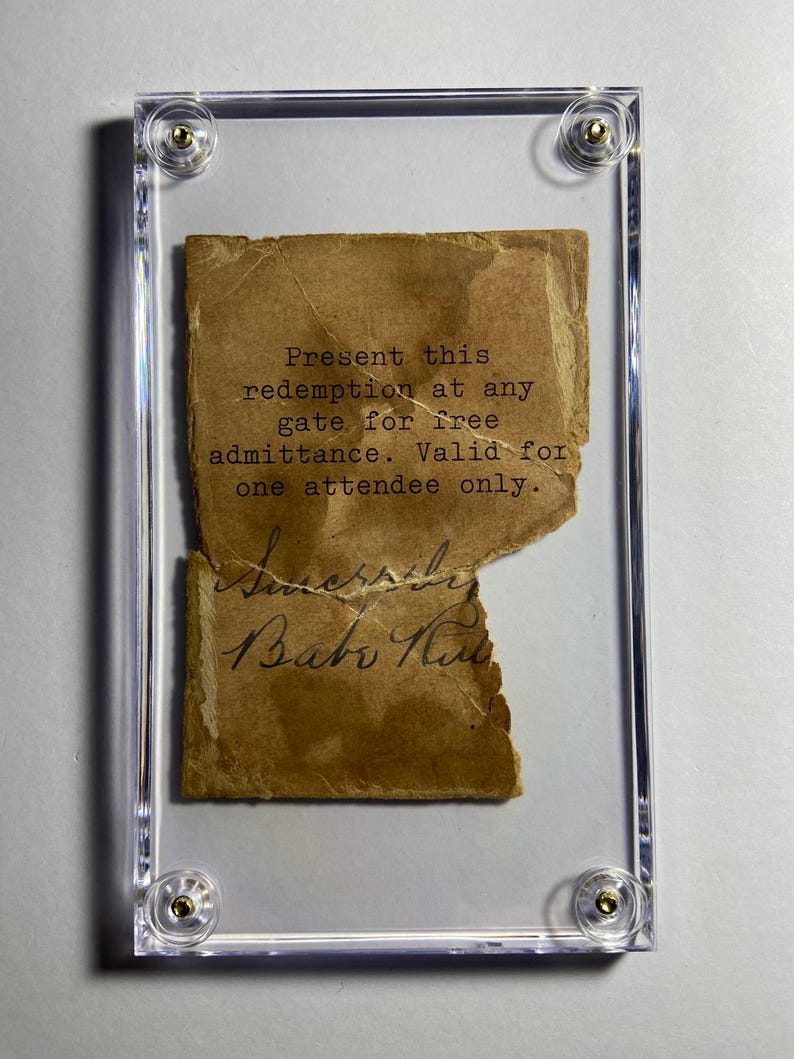 Present this
redemption at any
gate for free
admittance. Valid for
one attendee only.
Sincerely
Babe Rut